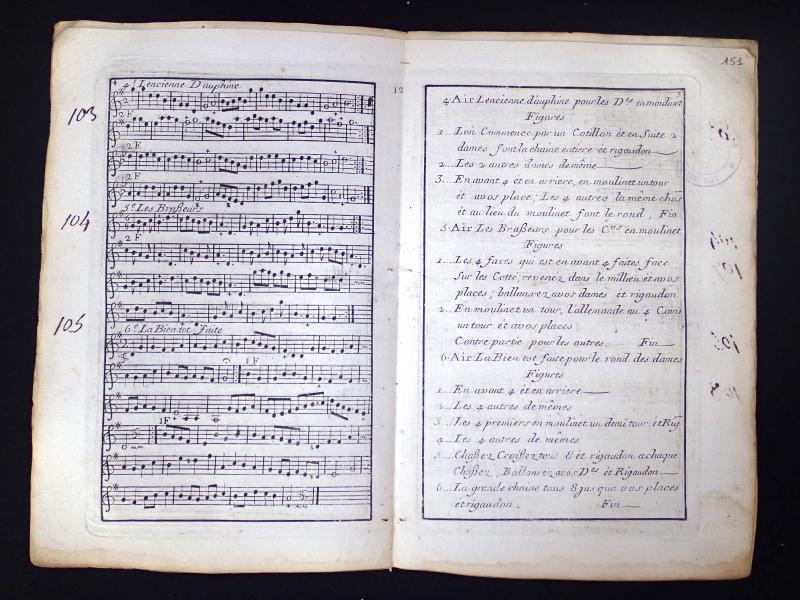 4
4.e Lencienne Dauphine
103
2 F
2 F
2 F
5.e Les Braßeurs
104
2 F
2 F
105
6.e La Bien tot faite
1 F
1 F
12
151
5
4. Air Lencienne dauphine pour les D.tes en moulinet
Figures
1... Lon Commence par un Cotillon et en Suite 2
dames font la chaine entiere et rigaudon
2... Les 2 autres dames de même
3... En avant 4 et en arriere, en moulinet un tour
et avos place; Les 4 autres la même chos
et au lieu du moulinet font le rond, Fin
5. Air Les Braßeurs pour les C.ers en moulinet
Figures
1... Les 4 faces qui est en avant 4 faites face
Sur les Cotté, revenéz dans le millieu et avos
places; ballansez avos dames et rigaudon
2... En moulinet un tour, l'allemande au 4 Coins
un tour et avos places
Contre partie pour les autres. Fin
6. Air La Bien tot faite pour le rond des dames
Figures
1... En avant 4 et en arriere
2... Les 4 autres de mêmes
3... Les 4 premiers en moulinet un demi tour, et Rig
4... Les 4 autres de mêmes
5... Chaßez Croißez tous 8 et rigaudon a chaque
Chaßez, Ballansez avos D.es et Rigaudon
6... La grande chaine tous 8 jus qua vos places
et rigaudon. Fin